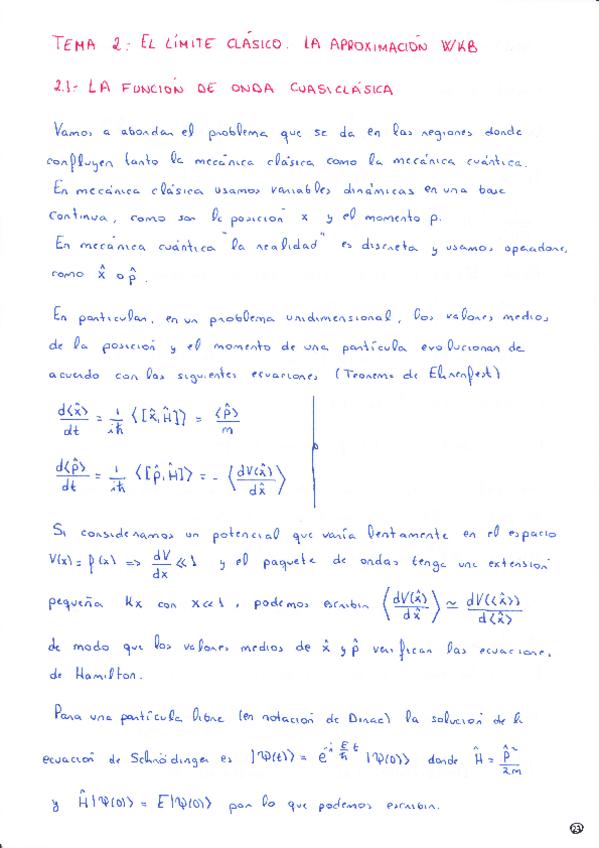 TEMA 2: EL LÍMITE CLÁSICO. LA APROXIMACIÓN WKB
2.1.- LA FUNCIÓN DE ONDA CUASICLÁSICA
Vamos a abordar el problema que se da en las regiones donde
confluyen tanto la mecánica clásica como la mecánica cuántica.
En mecánica clásica usamos variables dinámicas en una base
continua, como son la posición x y el momento p.
En mecánica cuántica "la realidad" es discreta y usamos operadores,
como x̂ o p̂.
En particular, en un problema unidimensional, los valores medios
de la posición y el momento de una partícula evolucionan de
acuerdo con las siguientes ecuaciones (Teorema de Ehrenfest)
d⟨x̂⟩/dt = 1/iħ ⟨[x̂,Ĥ]⟩ = ⟨p̂⟩/m
d⟨p̂⟩/dt = 1/iħ ⟨[p̂,Ĥ]⟩ = - ⟨dV(x̂)/dx̂⟩
Si consideramos un potencial que varía lentamente en el espacio
V(x) = f(x) => dV/dx ≪ 1 y el paquete de ondas tenga una extensión
pequeña Kx con x≪1, podemos escribir ⟨dV(x̂)/dx̂⟩ ≃ dV(⟨x̂⟩)/d⟨x̂⟩
de modo que los valores medios de x̂ y p̂ verifican las ecuaciones
de Hamilton.
Para una partícula libre (en notación de Dirac) la solución de la
ecuación de Schrödinger es |Ψ(t)⟩ = e^{-i E/ħ t} |Ψ(0)⟩ donde Ĥ = p̂²/2m
y Ĥ|Ψ(0)⟩ = E|Ψ(0)⟩ por lo que podemos escribir.
23